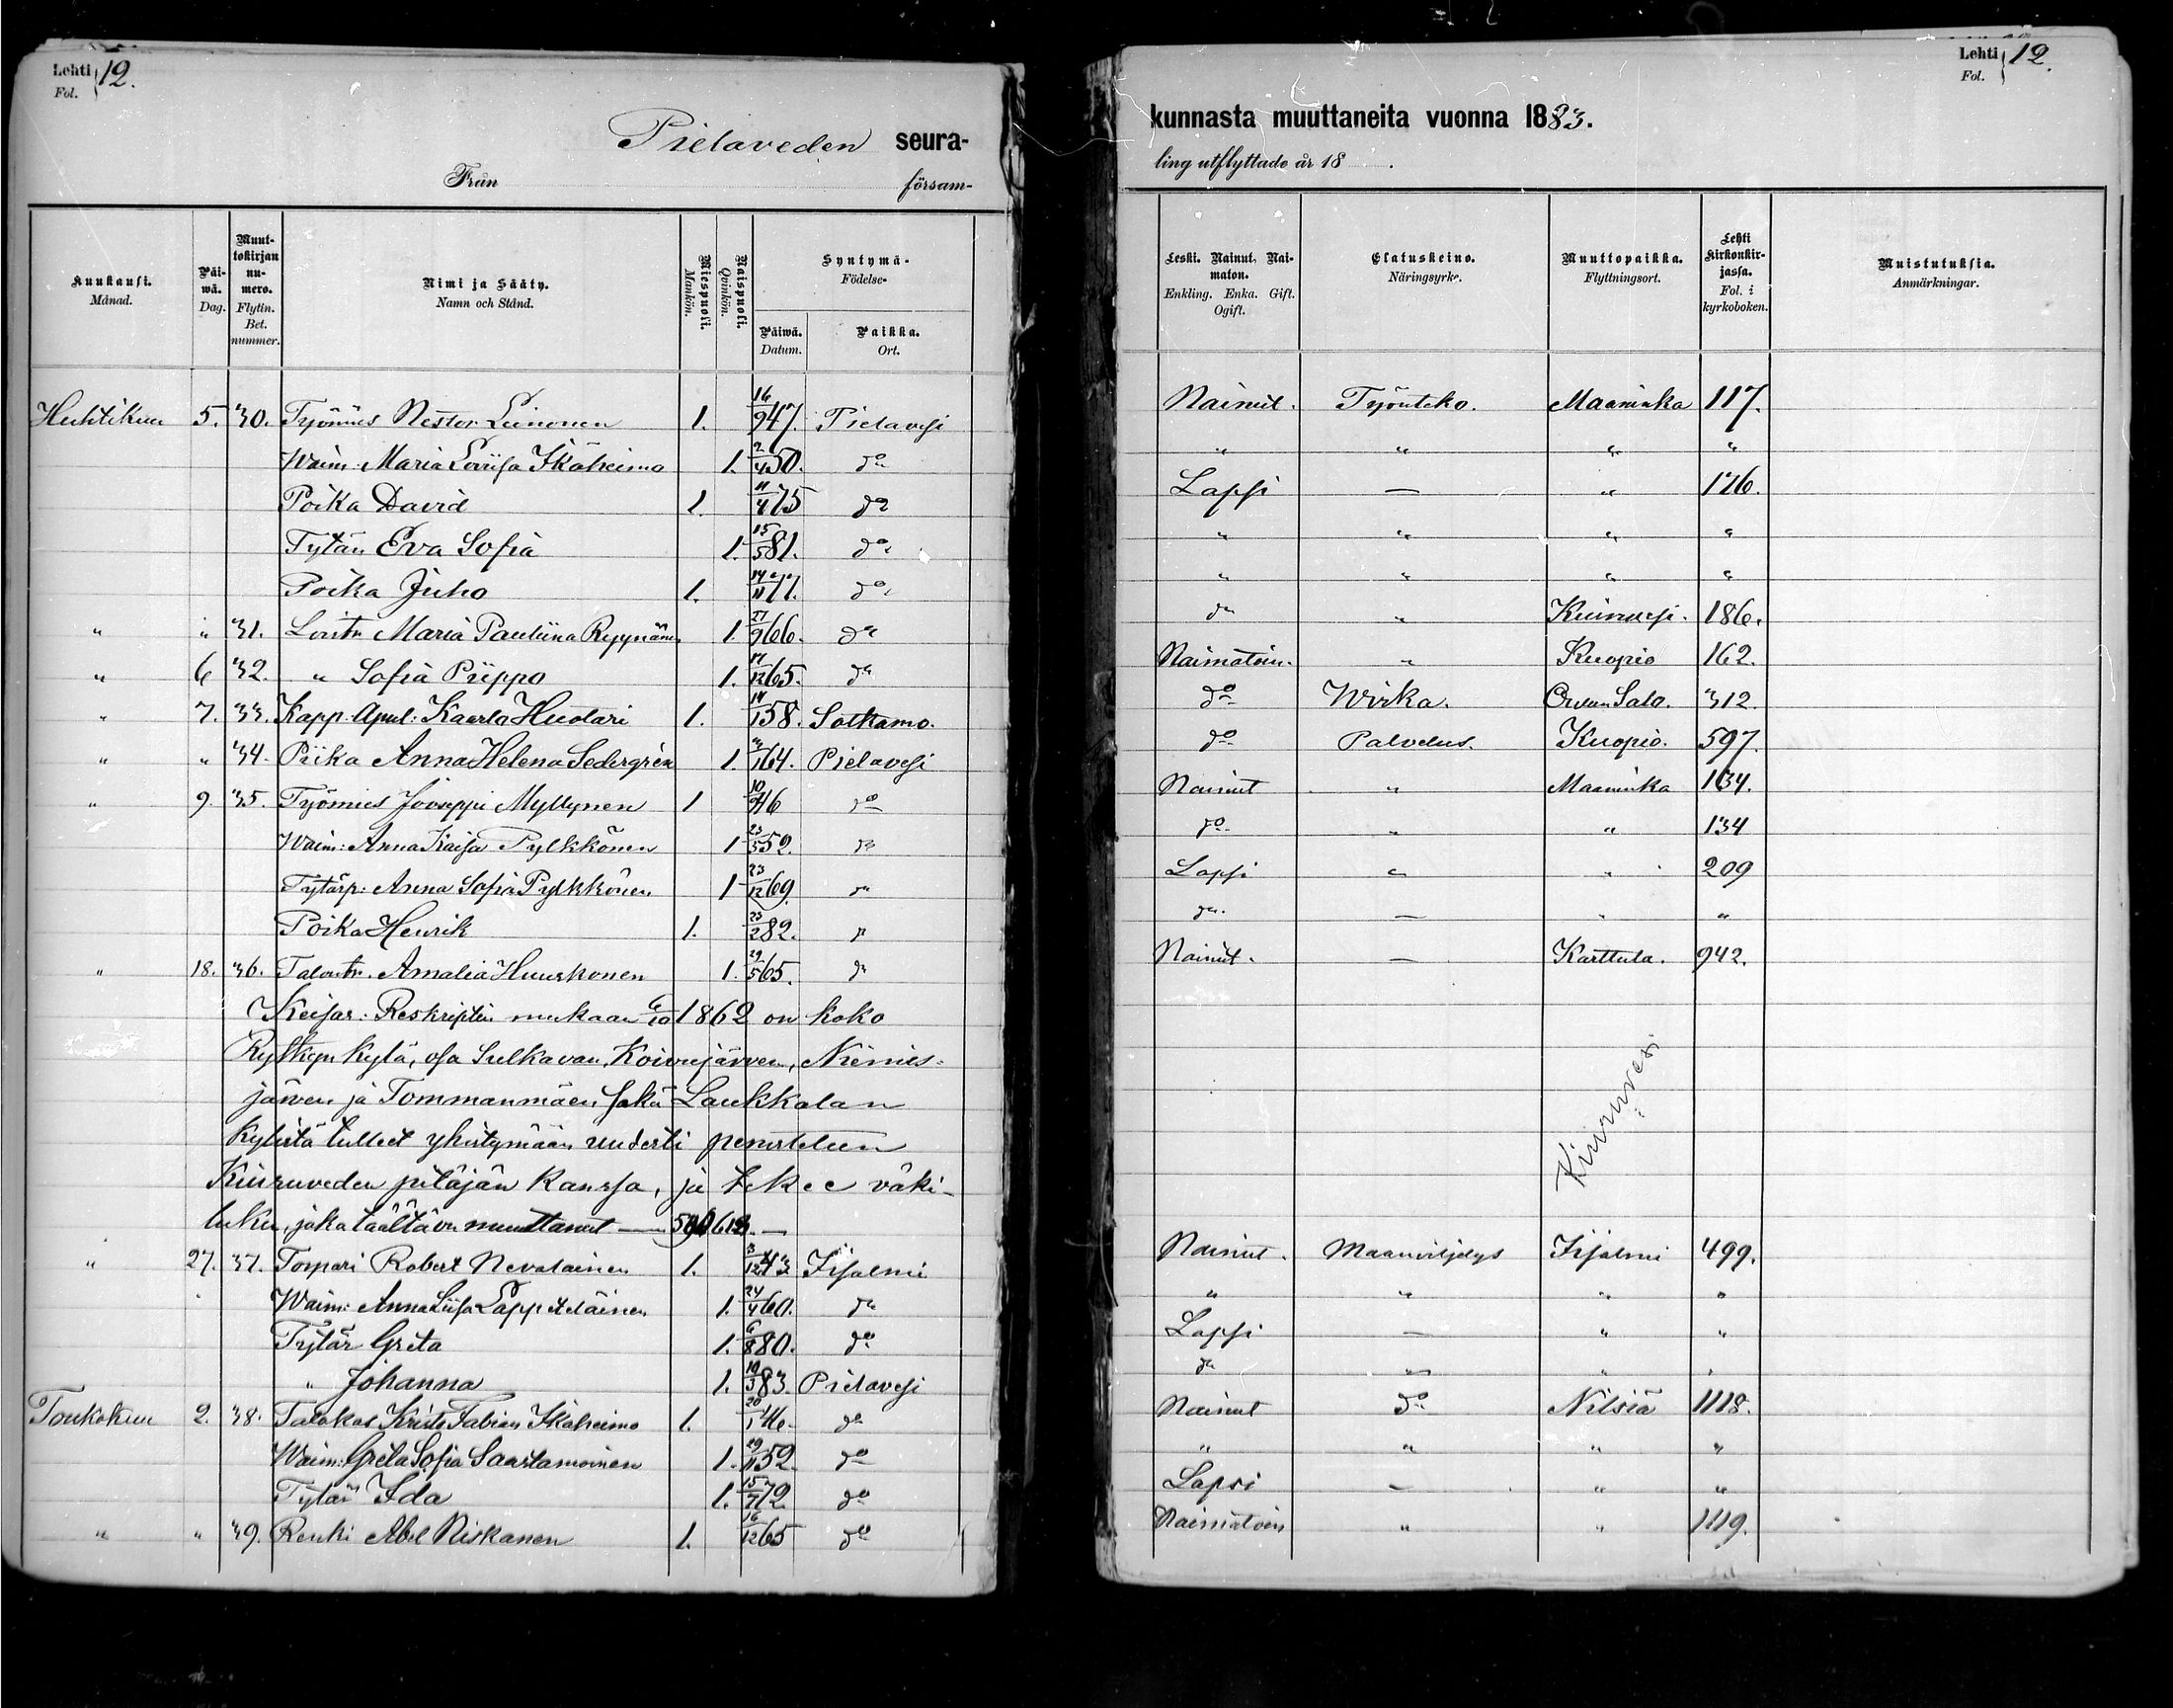 Lehti Fol. 12.
Pielaveden seura-
Från församl-
Kuukausi. Månad. Päiwä. Dag. Muuttokirjan numero. Flyttn. Bet. nummer. Nimi ja Sääty. Namn och Stånd. Miespuoli. Mankön. Naispuoli. Qvinkön. Syntymä- Födelse- Päiwä. Datum. Paikka. Ort.
Huhtikuu 5. 30. Työmies Nestor Leinonen 1. 16/9 47. Pielavesi
Waim: Maria Lovisa Ikäheimo 1. 2/4 50. do
Poika David 1. 11/4 75 do
Tytär Eva Sofia 1. 15/5 81. do
Poika Juho 1. 14/11 77. do
" " 31. Loistr Maria Pauliina Ryynänen 1. 27/9 66. do
" 6 32. " Sofia Piippo 1. 17/12 65. do
" 7. 33. Kapp: Apul: Kaarlo Huotari 1. 14/1 58. Sotkamo.
" " 34. Piika Anna Helena Sedergrén 1. 3/1 64. Pielavesi
" 9. 35. Työmies Jooseppi Myllynen 1 10/9 46 do
Waim: Anna Kaisa Pylkkönen 1 23/5 52. do
Tytärp: Anna Sofia Pylkkönen 1 23/12 69. do
Poika Henrik 1. 23/2 82. do
" 18. 36. Talontr. Amalia Huuskonen 1. 29/5 65. do
Keisar: Reskriptin mukaan 6/10 1862 on koko
Rytkyn kylä, osa Sulkavan, Koivujärven, Niemis-
järven ja Tommanmäen sekä Laukkalan
kylistä tulleet yhistymään uudesti perustetun
Kiuruveden pitäjän kanssa, ja tekee väki-
luku, joka täältä on muuttanut —
" 27. 37. Torpari Robert Nevalainen 1. 3/12 43 Iisalmi
Waim: Anna Liisa Lappeteläinen 1. 24/4 60. do
Tytär Greta 1. 6/8 80. do
" Johanna 1. 10/3 83. Pielavesi
Toukokuu 2. 38. Talokas Kristo Fabian Ikäheimo 1. 20/1 46. do
Waim: Greta Sofia Saastamoinen 1. 29/11 52. do
Tytär Ida 1. 15/7 72. do
" " 39. Renki Abel Niskanen 1. 16/12 65 do
Lehti Fol. 12.
kunnasta muuttaneita vuonna 1883.
ling utflyttade år 18 .
Leski. Nainut. Naimaton. Enkling. Enka. Gift. Ogift. Elatuskeino. Näringsyrke. Muuttopaikka. Flyttningsort. Lehti Kirkonkirjassa. Fol. i kyrkoboken. Muistutuksia. Anmärkningar.
Nainut. Työnteko. Maaninka 117.
" " " "
Lapsi — " 126.
" " " "
" " " "
do " Kiuruvesi. 186.
Naimatoin. " Kuopio 162.
do Wirka. 312.
do Palvelus. Kuopio. 597.
Nainut " Maaninka 134.
do " " 134
Lapsi " " 209
do. — " "
Nainut. — Karttula. 942.
Kiuruvesi
Nainut. Maanviljelys Iisalmi 499.
" " " "
Lapsi — " "
do " " "
Nainut do Nilsiä 1118.
" " " "
Lapsi – " "
Naimatoin " " 1119.